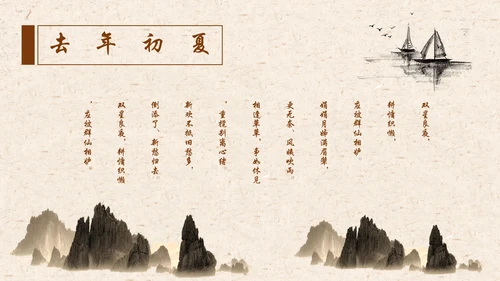 去年初夏
双星良夜，
耕慵织懒，
应被群仙相妒。
娟娟月姊满眉颦，
更无奈、风姨吹雨
相逢草草，争如休见
，重搅别离心绪
新欢不抵旧愁多，
倒添了、新愁归去
双星良夜，耕慵织懒
，应被群仙相妒。